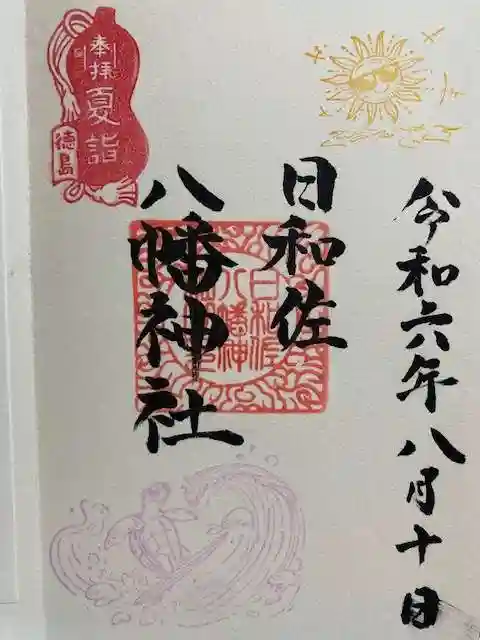 令和六年八月十日
日和佐
八幡神社
奉拝
夏詣
徳島
日和佐
八幡神